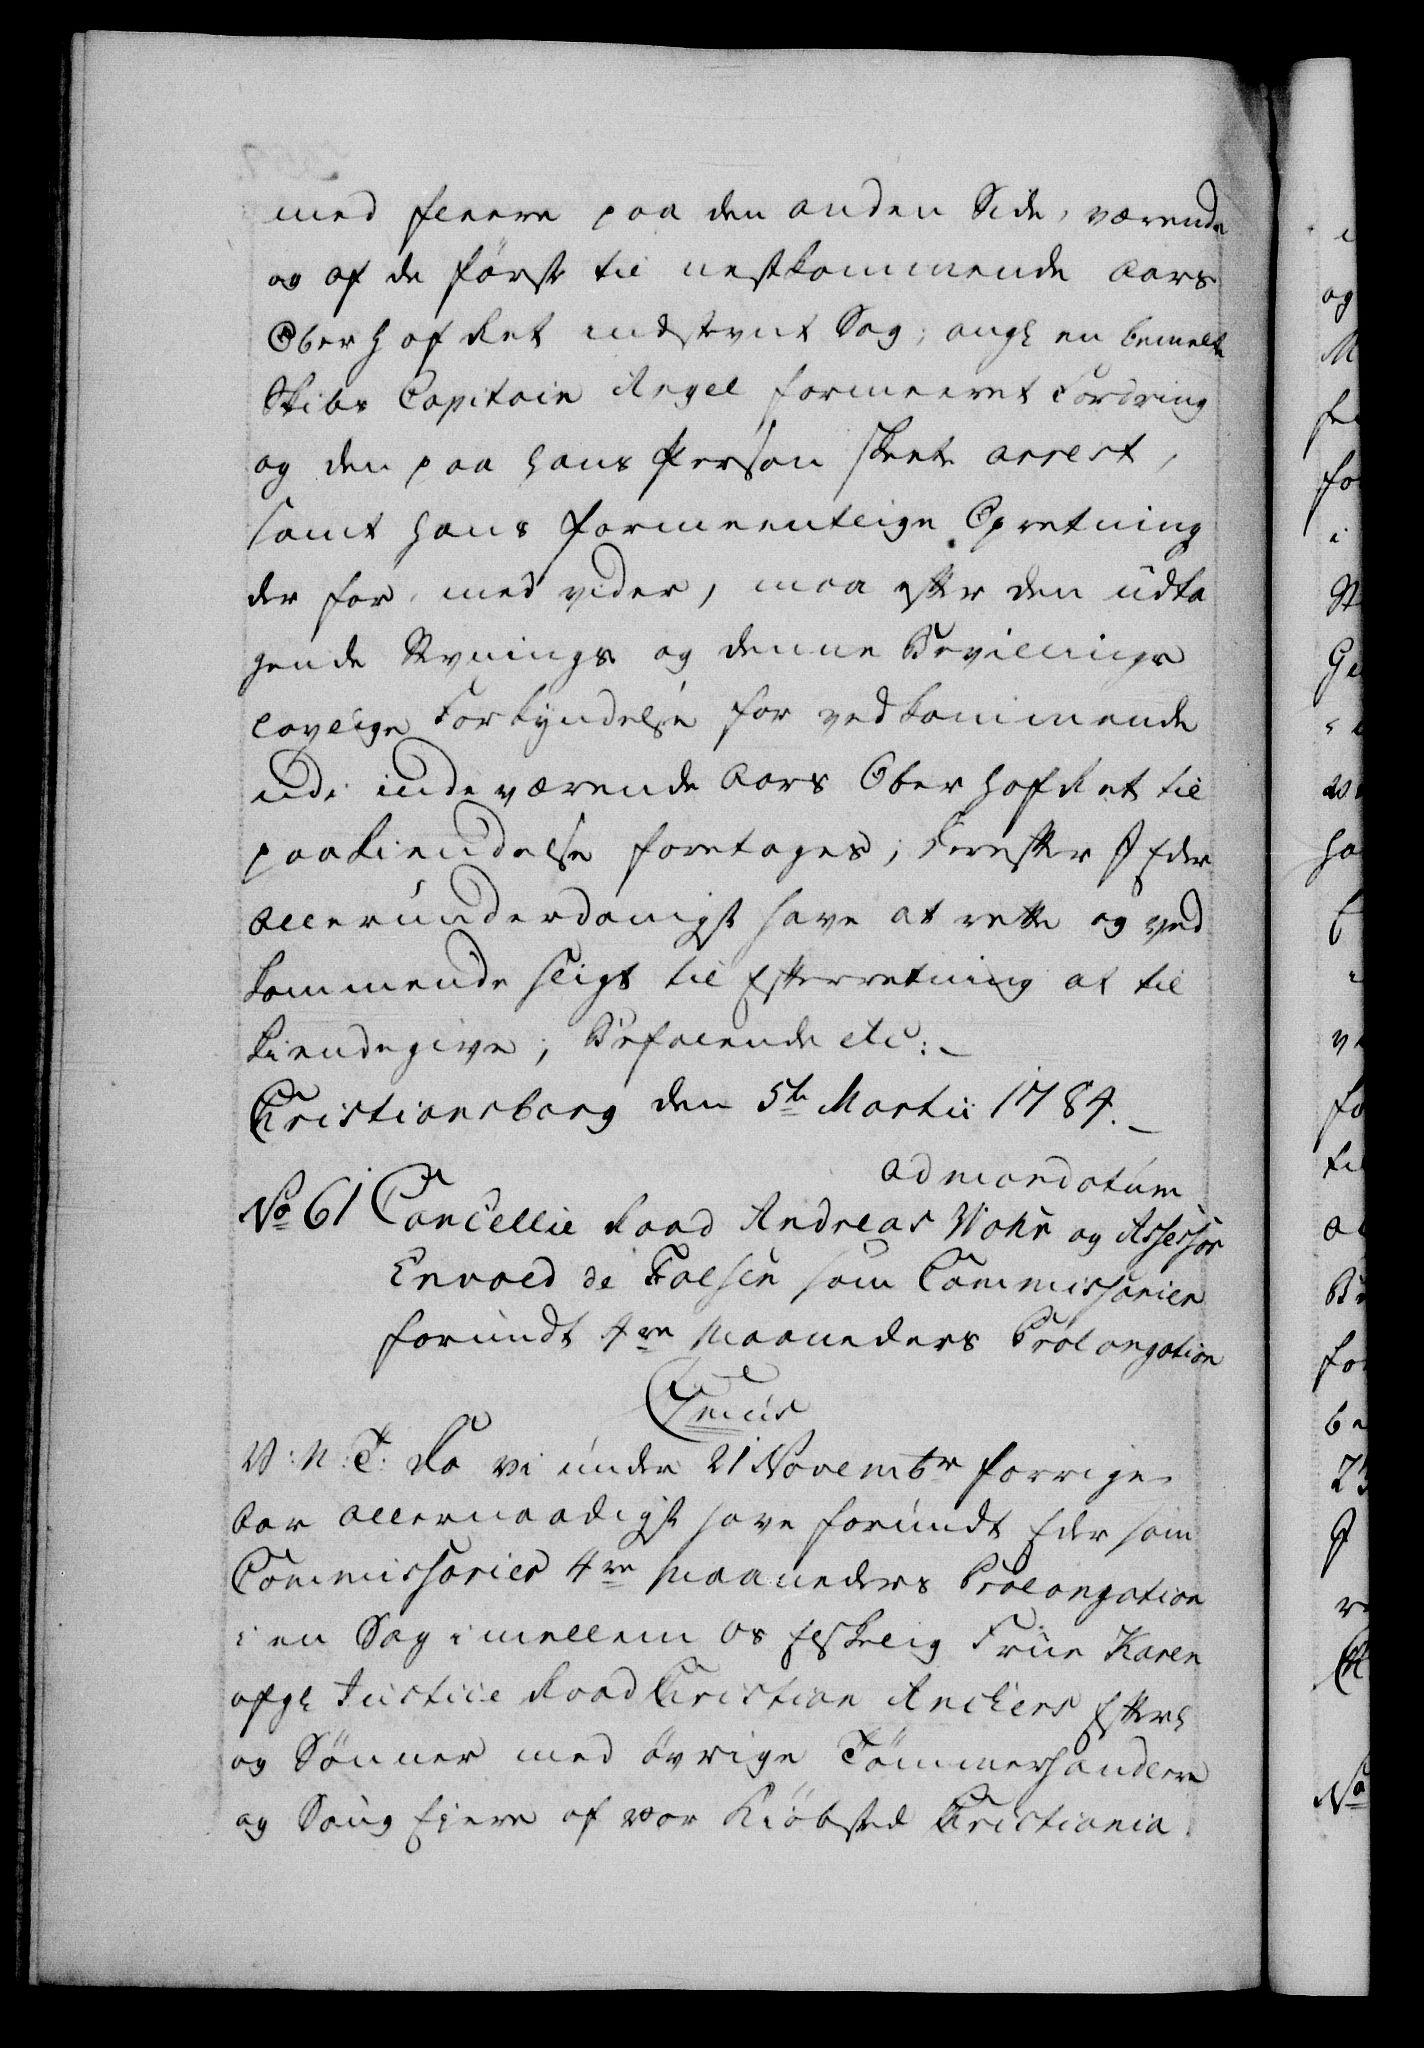 med fleere paa den anden Side, værende
og af de første til nestkommende Aars
Oberhof Ret indstevnt Sag, angl en bemelte
Skibs Capitain Angel formeeret Fordring
og den paa hans Person skeete arrest,
samt hans formeentlige Opretning
der for, med videre, maa efter den udta
gende Stevnings og denne Bevillings
lovlige Forkyndelse for vedkommende
udi indeværende Aars Oberhof Ret til
paakiendelse foretages; Derefter I Eder
allerunderdanigst have at rette og ved
kommende sligt til Efterretning at til
kiendegive; Befalende etc: _
Christiansborg den 5te Martii 1784. _
ad mandatum
No 61 Cancellie Raad Andreas Mohr og Assessor
Envold de Falsen som Commissarier
forundt 4re Maaneders Prolongation
C 7mus
V: N: T: Da vi under 21 Novembr forrige
Aar allernaadigst have forundt Eder som
Commissarier 4re Maaneders Prolongation
i en Sag imellem os Elskelig Frue Karen
afgl Justice Raad Christian Anckers Efterl
og Sønner med øvrige Tømmerhandlere
og Saug Eiere af vor Kiøbsted Christiania